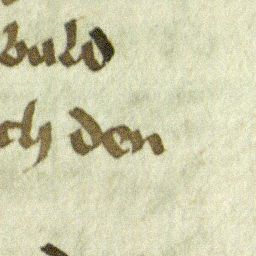 bald
ch den